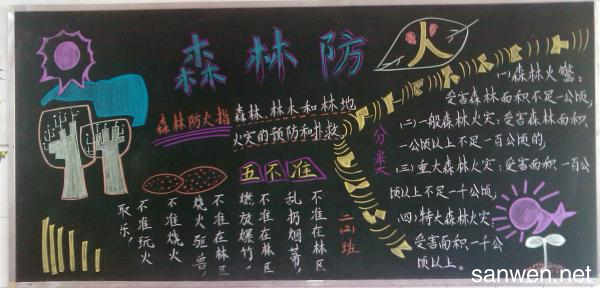 森林防火
森林防火指
森林、林木和林地
火灾的预防和扑救
五不准
不准在林区
乱扔烟蒂,
不准在林区
燃放爆竹,
不准在林区
烧火驱兽,
不准烧火
不准玩火
取乐,
二(二)班
分类
(一)森林火警:
受害森林面积不足一公顷,
(二)一般森林火灾:受害森林面积、
一公顷以上不足一百公顷的,
(三)重大森林火灾:受害面积一百公
顷以上不足一千公顷,
(四)特大森林火灾
受害面积一千公
顷以上。
sanwen.net